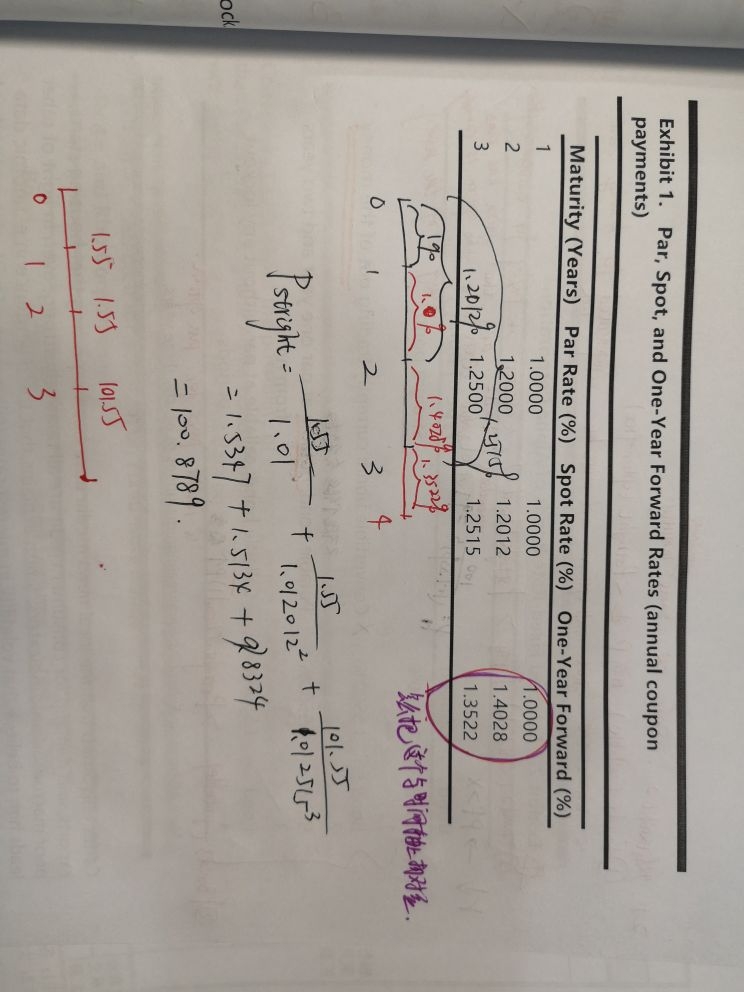 Exhibit 1. Par, Spot, and One-Year Forward Rates (annual coupon
payments)
Maturity (Years) Par Rate (%) Spot Rate (%) One-Year Forward (%)
1 1.0000 1.0000 1.0000
2 1.2000 1.2012 1.4028
3 1.2500 1.2515 1.3522
1.2012%
1% 1.0% 1.4028% 1.3522%
0 1 2 3 4
把这个与时间轴相对应.
Pstright = 1.55/1.01 + 1.55/1.012012² + 101.55/1.012515³
= 1.5347 + 1.513 + 97.8324
= 100.8789.
1.55 1.55 101.55
0 1 2 3
ock